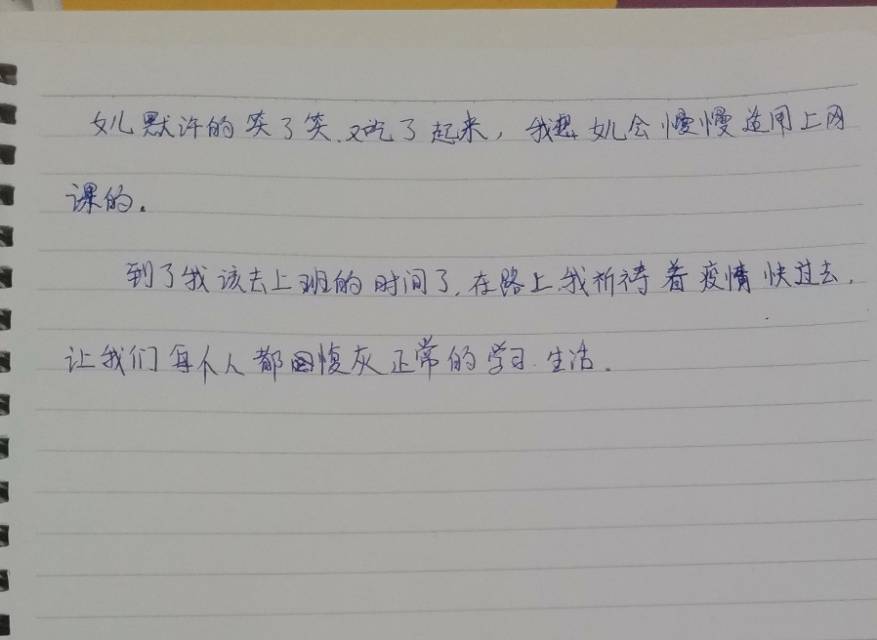 女儿默许的笑了笑.又吃了起来，我想女儿会慢慢适用上网
课的.
到了我该去上班的时间了.在路上我祈祷着疫情快过去.
让我们每个人都回愎灰正常的学习.生活.